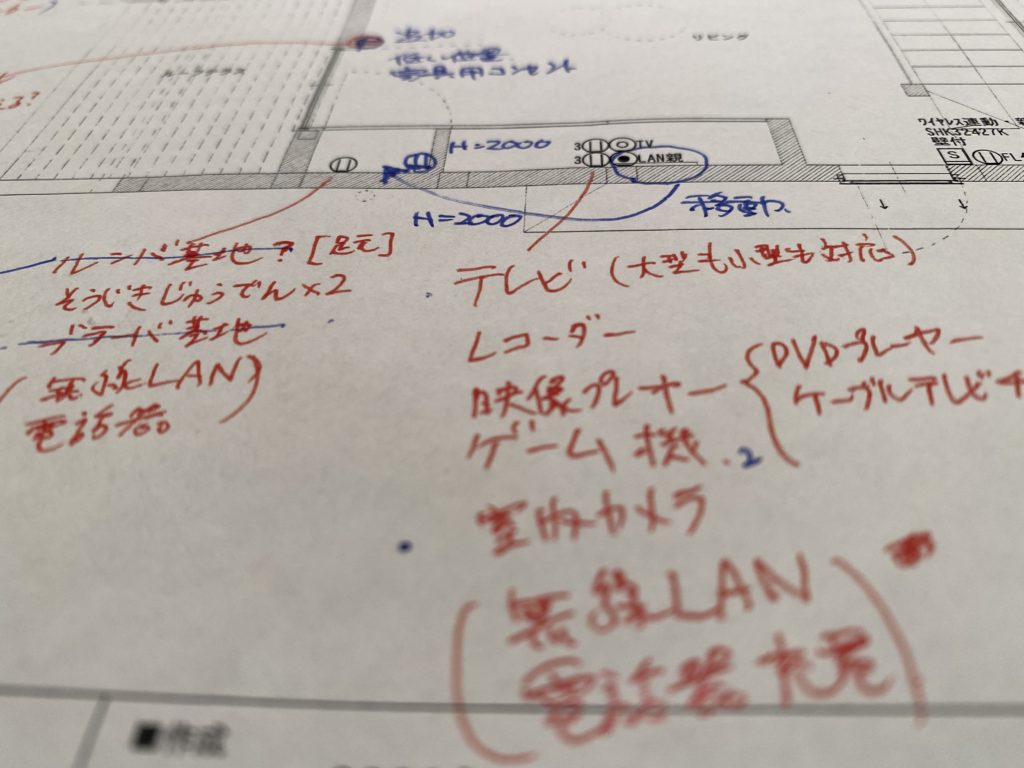 追加
低い位置
家具用コンセント
リビング
ルーフテラス
える?
H=2000
3
TV
3
LAN親
ワイヤレス連動・
SHK32427K
壁付
S
FL
H=2000
移動
ルンバ基地? [足元]
そうじきじゅうでん×2
ブラーバ基地
(無線LAN)
電話器
テレビ (大型も小型も対応)
レコーダー
映像プレオー
DVDプレーヤー
ケーブルテレビチ
ゲーム機 2
室内カメラ
(無線LAN
電話器 充電)
■作成